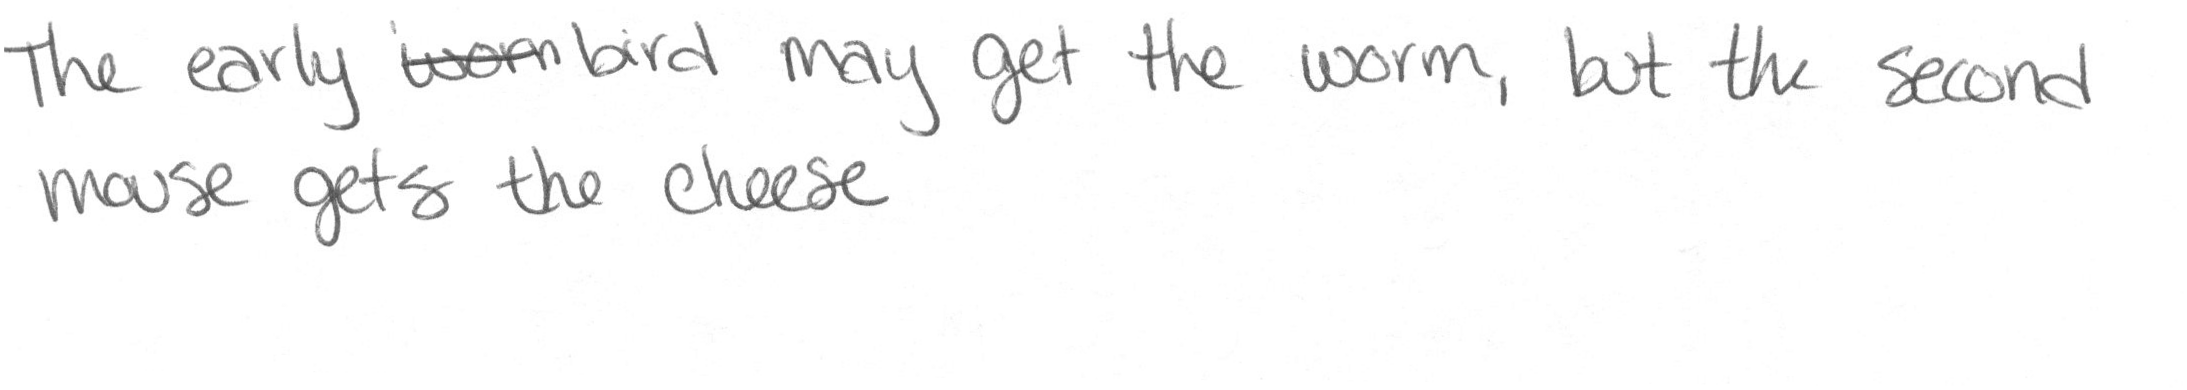 The early worm bird may get the worm, but the second
mouse gets the cheese